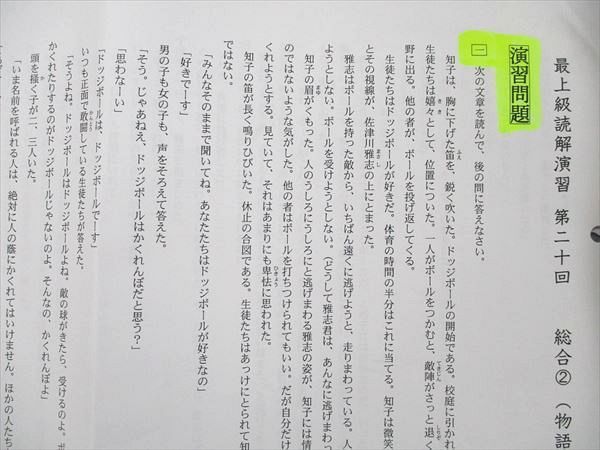 最上級読解演習　第二十回　　総合②（物語
演習問題
一　次の文章を読んで、後の問に答えなさい。
知子は、胸に下げた笛を、鋭く吹いた。ドッジボールの開始である。校庭に引かれ
生徒たちは嬉々として、位置についた。一人がボールをつかむと、敵陣がさっと退く
野に出る。他の者が、ボールを投げ返してくる。
生徒たちはドッジボールが好きだ。体育の時間の半分はこれに当てる。知子は微笑
とその視線が、佐津川雅志の上にとまった。
雅志はボールを持った敵から、いちばん遠くに逃げようと、走りまわっている。人
ようとしない。ボールを受けようとしない。（どうして雅志君は、あんなに逃げまわっ
知子の眉がくもった。人のうしろにうしろにと逃げまわる雅志の姿が、知子には情
のではないような気がした。他の者はボールを打ちつけられてもいい。だが自分だけ
くれようとする。見ていて、それはあまりにも卑怯に思われた。
知子の笛が長く鳴りひびいた。休止の合図である。生徒たちはあっけにとられて知
ではない。
「みんなそのままで聞いてね。あなたたちはドッジボールが好きなの」
「好きでーす」
男の子も女の子も、声をそろえて答えた。
「そう。じゃあねえ、ドッジボールはかくれんぼだと思う？」
「思わなーい」
「ドッジボールは、ドッジボールでーす」
いつも正面で敢闘している生徒たちが答えた。
「そうよね。ドッジボールはドッジボールよね。敵の球がきたら、受けるのよ。ボ
かくれたりするのがドッジボールじゃないのよ。そんなの、かくれんぼよ」
頭を掻く子が二、三人いた。
「いま名前を呼ばれる人は、絶対に人の蔭にかくれてはいけません。ほかの人たち